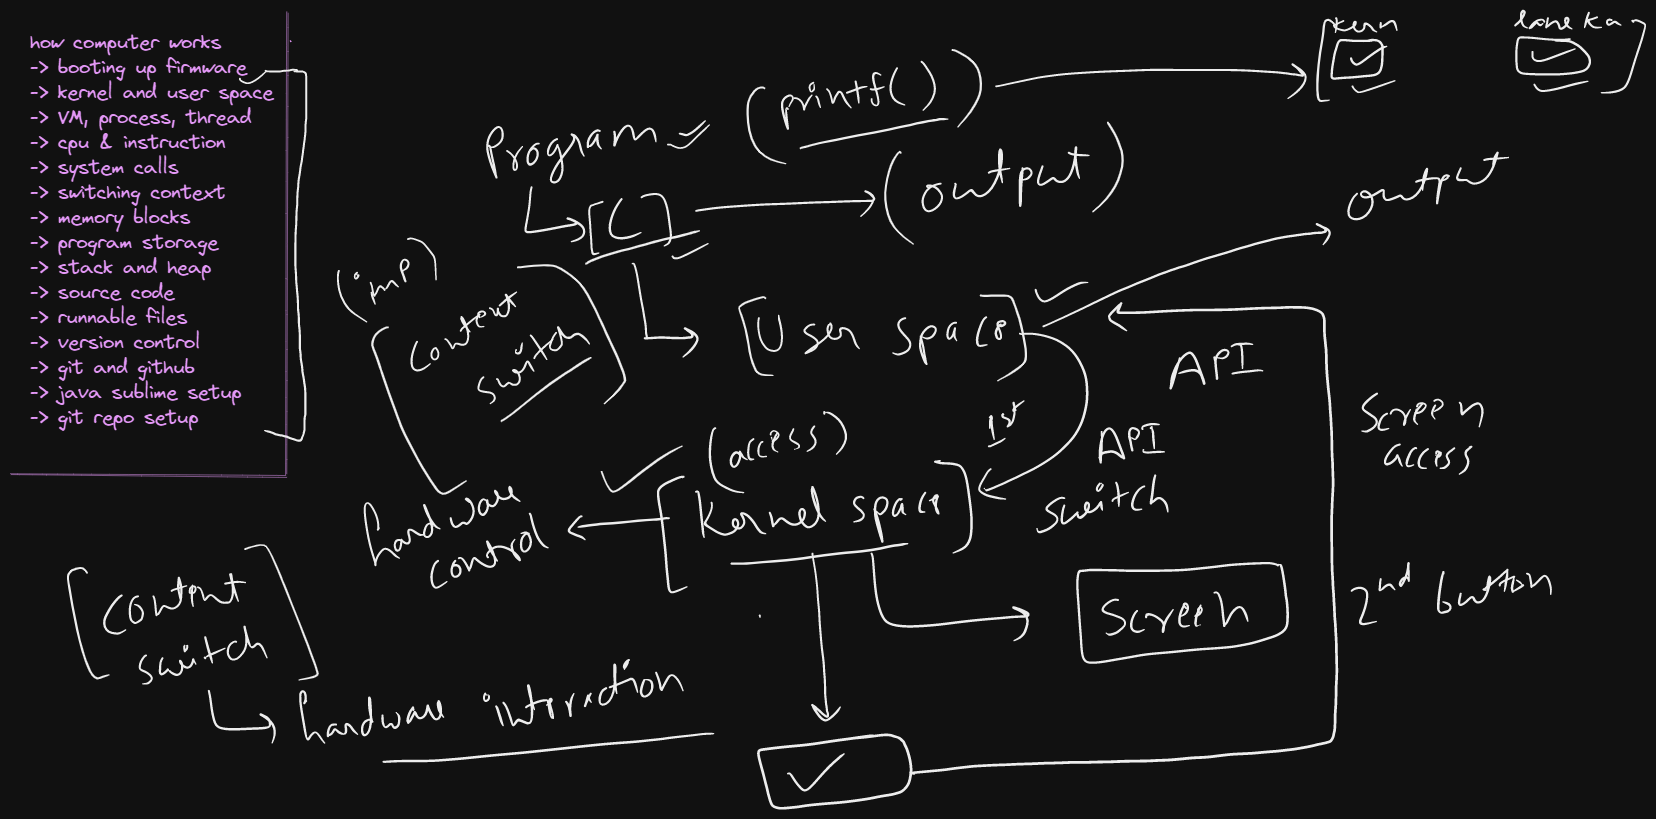 how computer works
-> booting up firmware
-> kernel and user space
-> VM, process, thread
-> cpu & instruction
-> system calls
-> switching context
-> memory blocks
-> program storage
-> stack and heap
-> source code
-> runnable files
-> version control
-> git and github
-> java sublime setup
-> git repo setup
kern
Program
(printf())
[C]
(output)
output
(imp)
Context
switch
[User space]
API
Screen
access
1st
API
switch
(access)
[Kernel space]
hardware
control
Screen
2nd button
[Context
switch]
hardware interaction